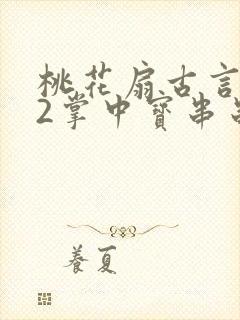 桃花扇古言
2掌中寳串
養夏